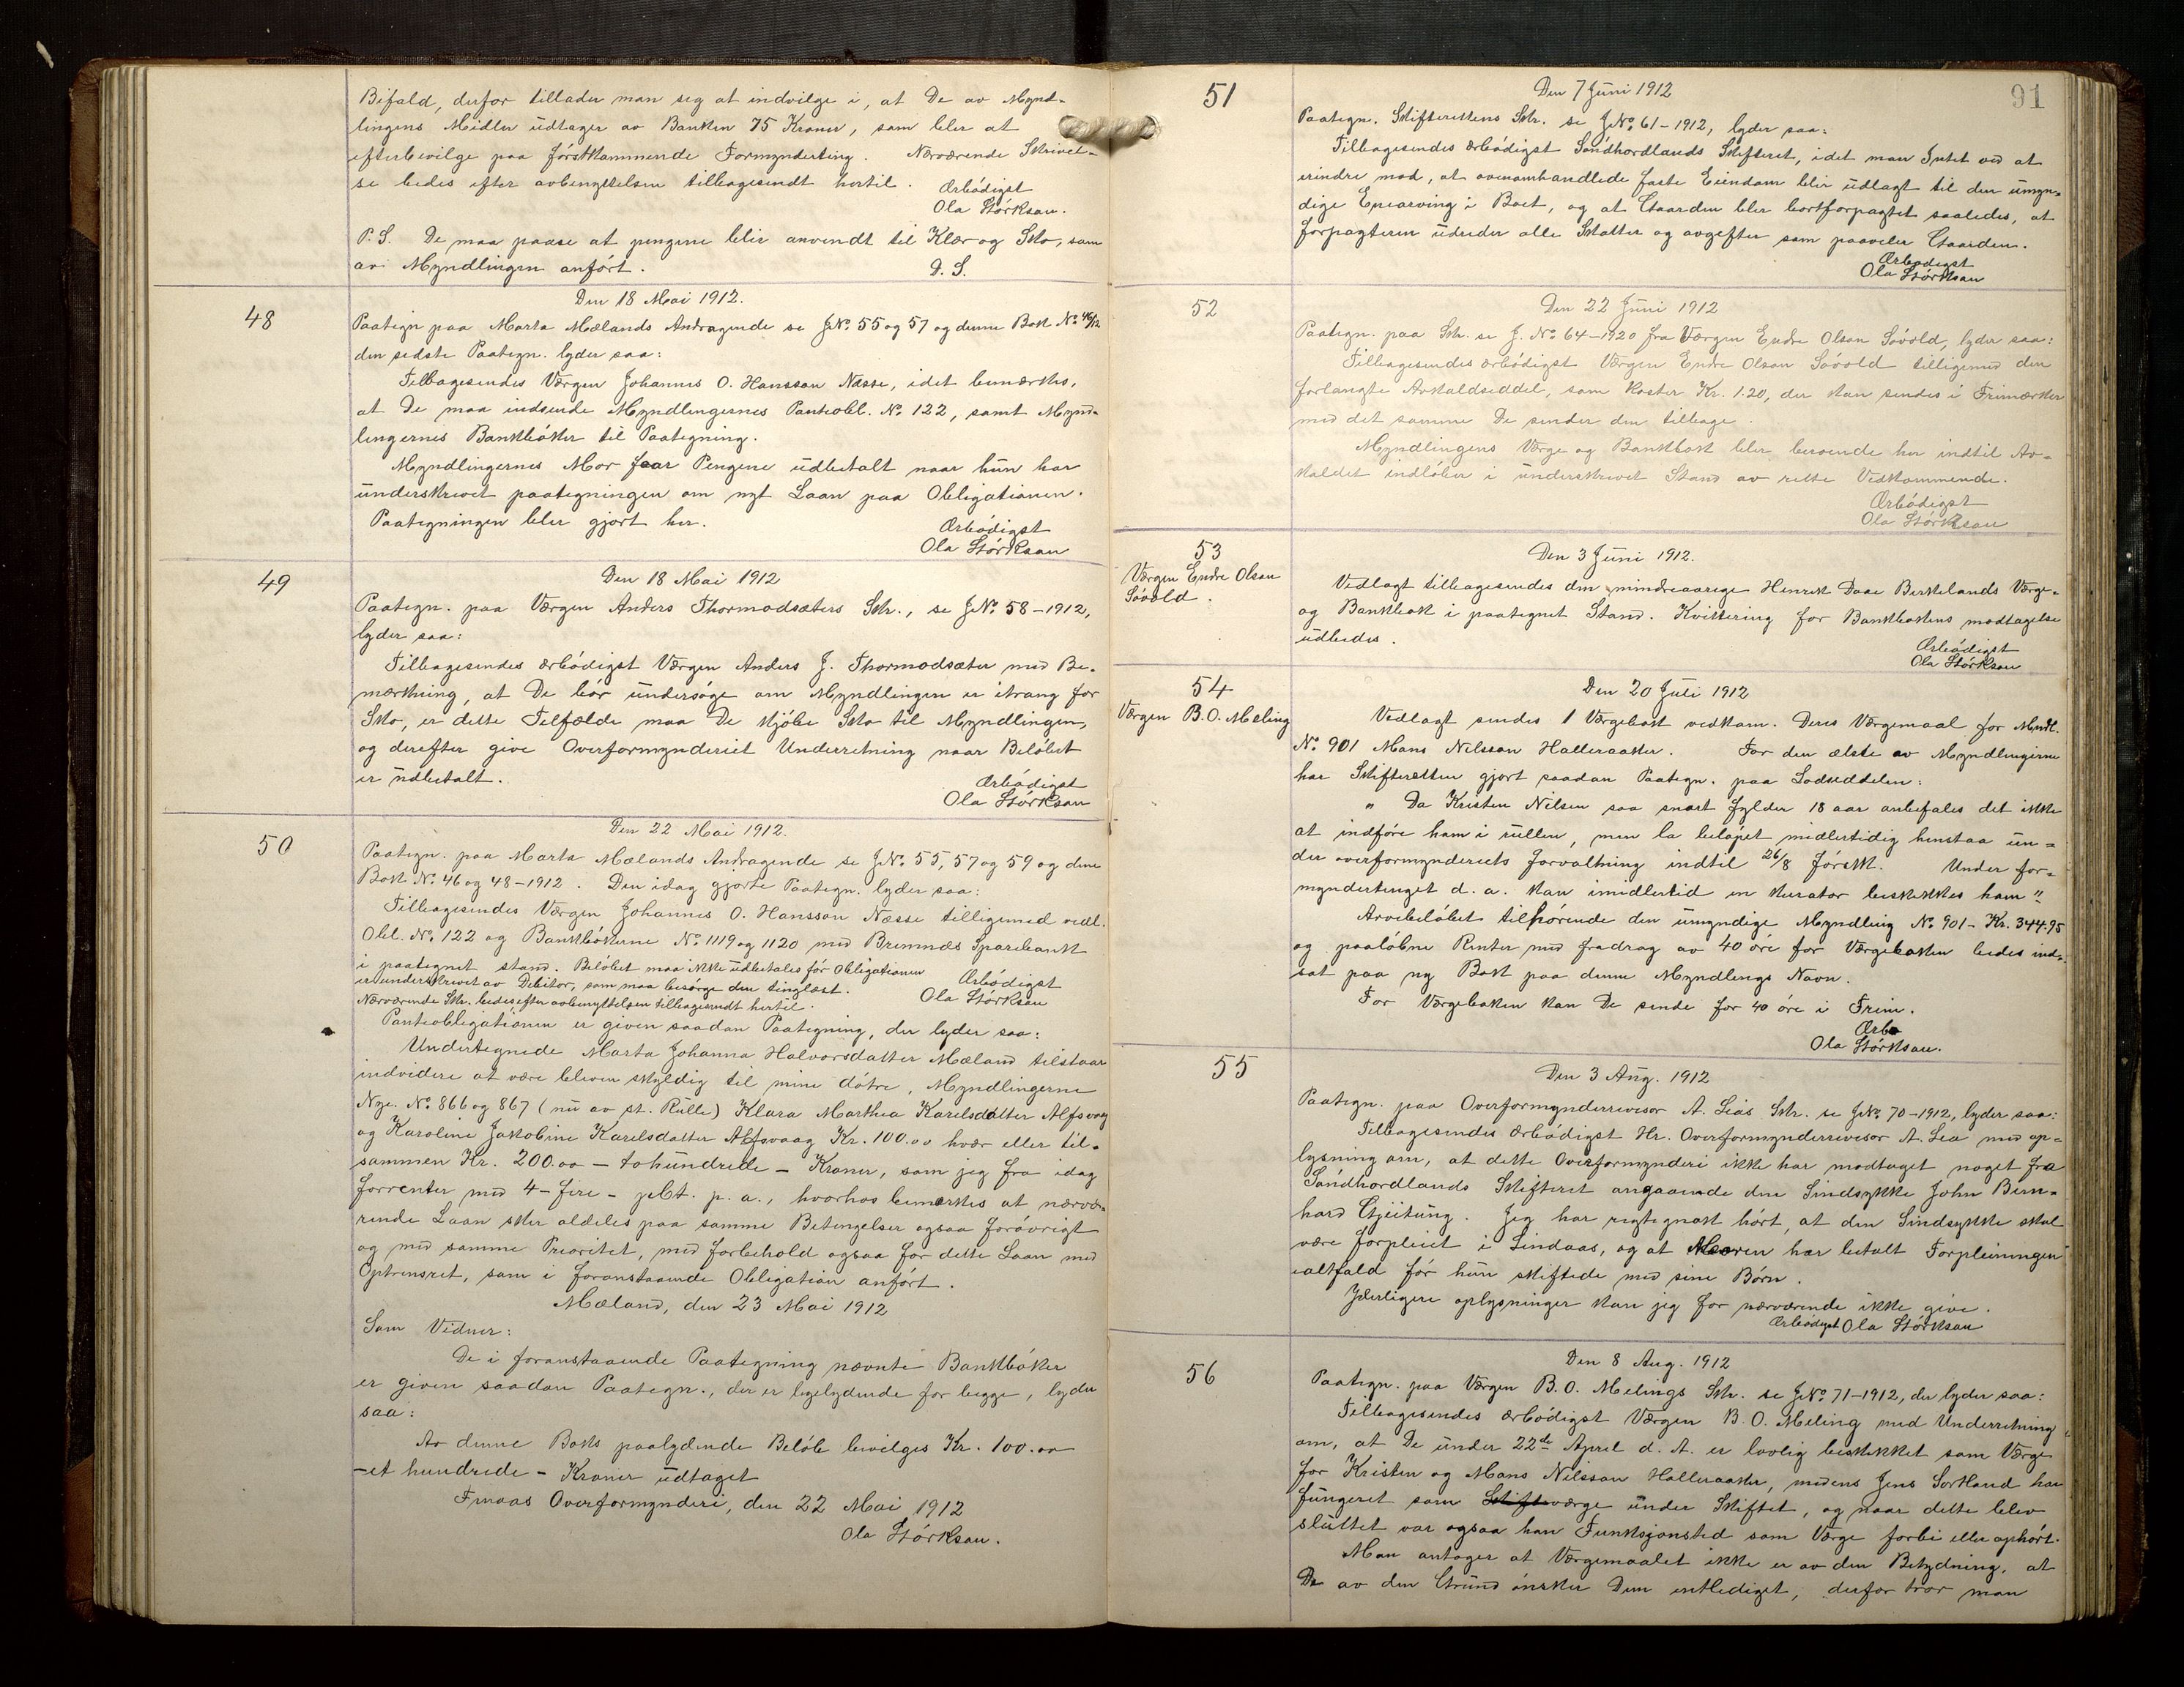 Bifald, derfor tillader man seg at indvilge i, at De av Mynd-
lingens Midler üdtager av Banken 75 Kroner, som bler at
efterbevilge paa förstkommende Formynderting. Nærværende Skrivel-
se bedes efter avbenyttelsen tilbagesendt hertil.
Ærbödigst
Ola Störkson.
P.S. De maa paase at pengene blir anvendt til Klær og Sko, som
av Myndlingen anfört.
D. S.
48
Den 18 Mai 1912.
Paategn paa Marta Mælands Andragende se J.No. 55 og 57 og denne Bok No. 46/12
den sedste Paategn. lyder saa:
Tilbagesendes Værgen Johannes O. Hansson Næsse, idet bemærkes,
at De maa indsende Myndlingernes Panteobl. No. 122, samt Mynd-
lingernes Bankböker til Paategning.
Myndlingernes Mor faar Pengene üdbetalt naar hün har
ünderskrevet paategningen om nyt Laan paa Obligationen.
Paategningen bler gjort her.
Ærbödigst
Ola Störkson
49
Den 18 Mai 1912
Paategn. paa Værgen Anders Thormodsæters Skr., se J.No. 58-1912,
lyder saa:
Tilbagesendes ærbödigst Værgen Anders J. Thormodsæter med Be-
mærkning, at De bör ündersöge om Myndlingen er itrang for
Sko, er dette Telfælde maa De kjöbe Sko til Myndlingen,
og derefter give Overformynderiet Underretning naar Belöbet
er üdbetalt.
Ærbödigst
Ola Störkson
50
Den 22 Mai 1912.
Paategn. paa Marta Mælands Andragende se J.No. 55, 57 og 59 og denne
Bok No. 46 og 48-1912. Den idag gjorte Paategn. lyder saa:
Tilbagesendes Værgen Johannes O. Hansson Næsse tilligemed vedl.
Obl. No. 122 og Bankbökerne No. 1119 og 1120 med Bremnes Sparebank
i paategnet stand. Belöbet maa ikke üdbetales för Obligationen
er underskrevet av Debitor, som maa besörge den tinglæst.
Nærværende Skr. bedes efter avbenyttelsen tilbagesendt hertil.
Ærbödigst
Ola Störkson
Panteobligationen er given saadan Paategning, der lyder saa:
Undertegnede Marta Johanna Halvorsdatter Mæland tilstaar
indvidere at være bleven skyldig til mine dötre, Myndlingerne
Nye. No. 866 og 867 (nü av st. Rülle) Klara Marthea Karelsdatter Alfsvaag
og Karoline Jakobine Karelsdatter Alfsvaag Kr. 100.00 hver eller til-
sammen Kr. 200.00 - tohündrede - Kroner, som jeg fra idag
forrenter med 4 - fire - pCt. p. a., hvorhos bemerkes at nærvæ-
rende Laan sker aldeles paa samme Betingelser ogsaa forövrigt
og med samme Prioritet, med forbehold ogsaa for dette Laan med
Optrinsret, som i foranstaaende Obligation anfört.
Mæland, den 23 Mai 1912
Som Vidner:
De i foranstaaende Paategning nævnte Bankböker
er given saadan Paategn., der er ligelydende for begge, lyder
saa:
Av denne Boks paalydende Belöb bevilges Kr. 100.00
- et hundrede - Kroner üdtaget
Finaas Overformynderi, den 22 Mai 1912
Ola Störkson.
91
51
Den 7 Jüni 1912
Paategn. Skifterettens Skr. se J.No. 61-1912, lyder saa:
Tilbagesendes ærbödigst Söndhordlands Skifteret, idet man Intet ved at
erindre mod, at ovenomhandlede faste Eiendom blir üdlagt til den ümyn-
dige Enearving i Boet, og at Gaarden bler bortforpagtet saaledes, at
forpagteren üdreder alle Skatter og avgefter som paaveler Gaarden.
Ærbödigst
Ola Störkson
52
Den 22 Jüni 1912
Paategn. paa Skr. se J. No. 64-1920 fra Værgen Endre Olson Sövold, lyder saa:
Tilbagesendes ærbödigst Værgen Endre Olson Sövold tilligemed den
forlangte Avkaldseddel, som koster Kr. 1.20, der kan sendes i Frimærker
med det samme De sender den tilbage.
Myndlingens Værge og Bankbok bler beroende her indtil Av-
kaldet indlöber i ünderskrevet Stand av rette Vedkommende.
Ærbödigst
Ola Störkson
53
Værgen Endre Olson
Sövold.
Den 3 Jüni 1912.
Vedlagt tilbagesendes den mindreaarige Henrik Daae Berkelands Værge-
og Bankbok i paategnet Stand. Kvittering for Bankbokens modtagelse
üdbedes.
Ærbödigst
Ola Störkson
54
Værgen B. O. Meling
Den 20 Jüli 1912
Vedlagt sendes 1 Værgebok vedkom. Deres Værgemaal for Mndl.
No. 901 Mons Nelsson Halleraaker. For den ælste av Myndlingerne
har Skifteretten gjort saadan Paategn. paa Lodseddelen:
" Da Kristen Nilsen saa snart fylder 18 aar anbefales det ikke
at indföre ham i rüllen, men la belöpet midlertidig henstaa ün-
der overformynderiets forvaltning indtil 26/8 förstk. Under for-
myndertinget d. a. kan imidlertid en kurator beskikkes ham "
Arvebelöbet tilhörende den ümyndige Myndling No. 901 - Kr. 344.95
og paalöbne Renter med fradrag av 40 öre for Værgeboken bedes ind-
sat paa ny Bok paa denne Myndlings Navn.
For Værgeboken kan De sende for 40 öre i Frim.
Ærb
Ola Störkson.
55
Den 3 Aüg. 1912
Paategn. paa Overformynderrevisor A. Leas Skr. se J.No. 70-1912, lyder saa:
Tilbagesendes Ærbödigst Hr. Overformynderrevisor A. Lea med op-
lysning om, at dette Overformynderi ikke har modtaget noget fra
Söndhordlands Skifteret angaaende den Sindsykke John Bern-
hard Gjeitüng. Jeg har rigtignok hört, at den Sindsykke skal
være forpleiet i Lindaas, og at Moren har betalt Forpleiningen
ialtfald för hün skiftede med sine Börn.
Yderligere oplysninger kan jeg for nærværende ikke give.
Ærbödigst Ola Störkson
56
Den 8 Aug. 1912
Paategn. paa Værgen B. O. Melings Skr. se J.No. 71-1912, der lyder saa:
Tilbagesendes ærbödigst Værgen B. O. Meling med Underretning
om, at De ünder 22de April d. A. er lovlig beskikket som Værge
for Kristen og Mons Nilsson Halleraaker, medens Jens Sortland har
füngeret som Skifteværge ünder Skiftet, og naar dette blev
slüttet var ogsaa han Funksjonsted som Værge forbi eller ophört.
Man antager at Værgemaalet ikke er av den Betydning, at
De av den Gründ önsker Dem entlediget, derfor tror man